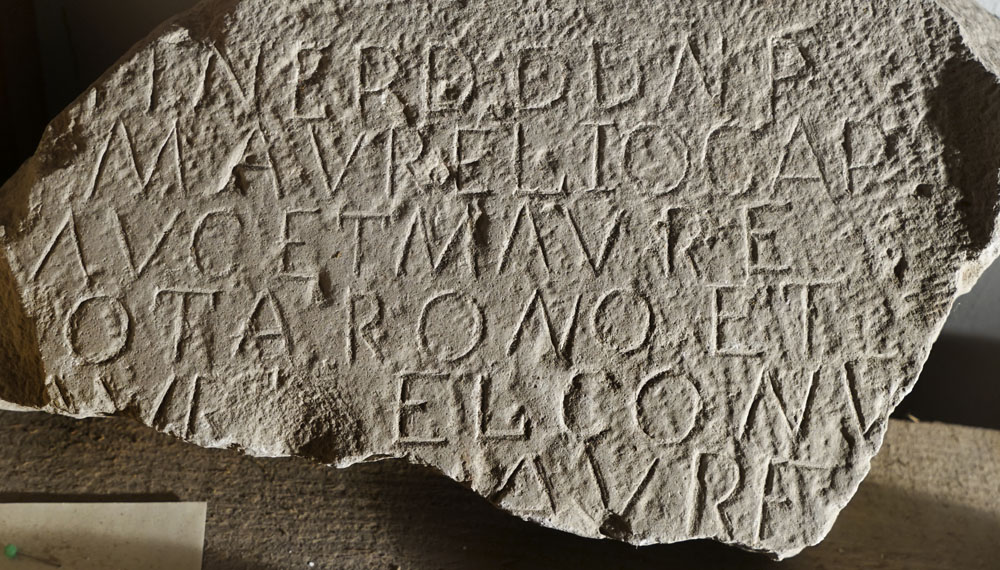 INERDDDNF
MAVRELIOCAP
AVCETMAVREL
OTARONOETL
EL CONV
AVRE